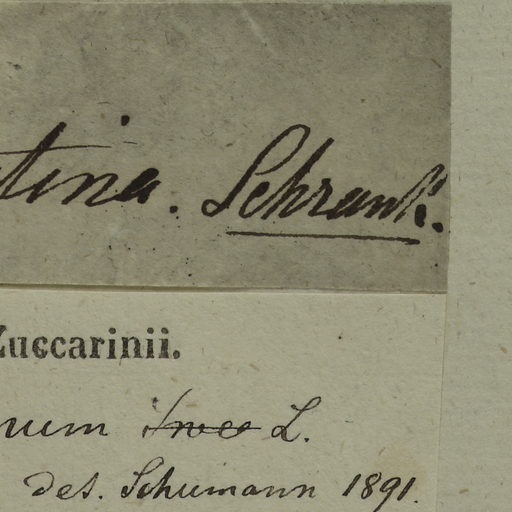 tina. Schrank.
Zuccarinii.
num L.
det. Schumann 1891.